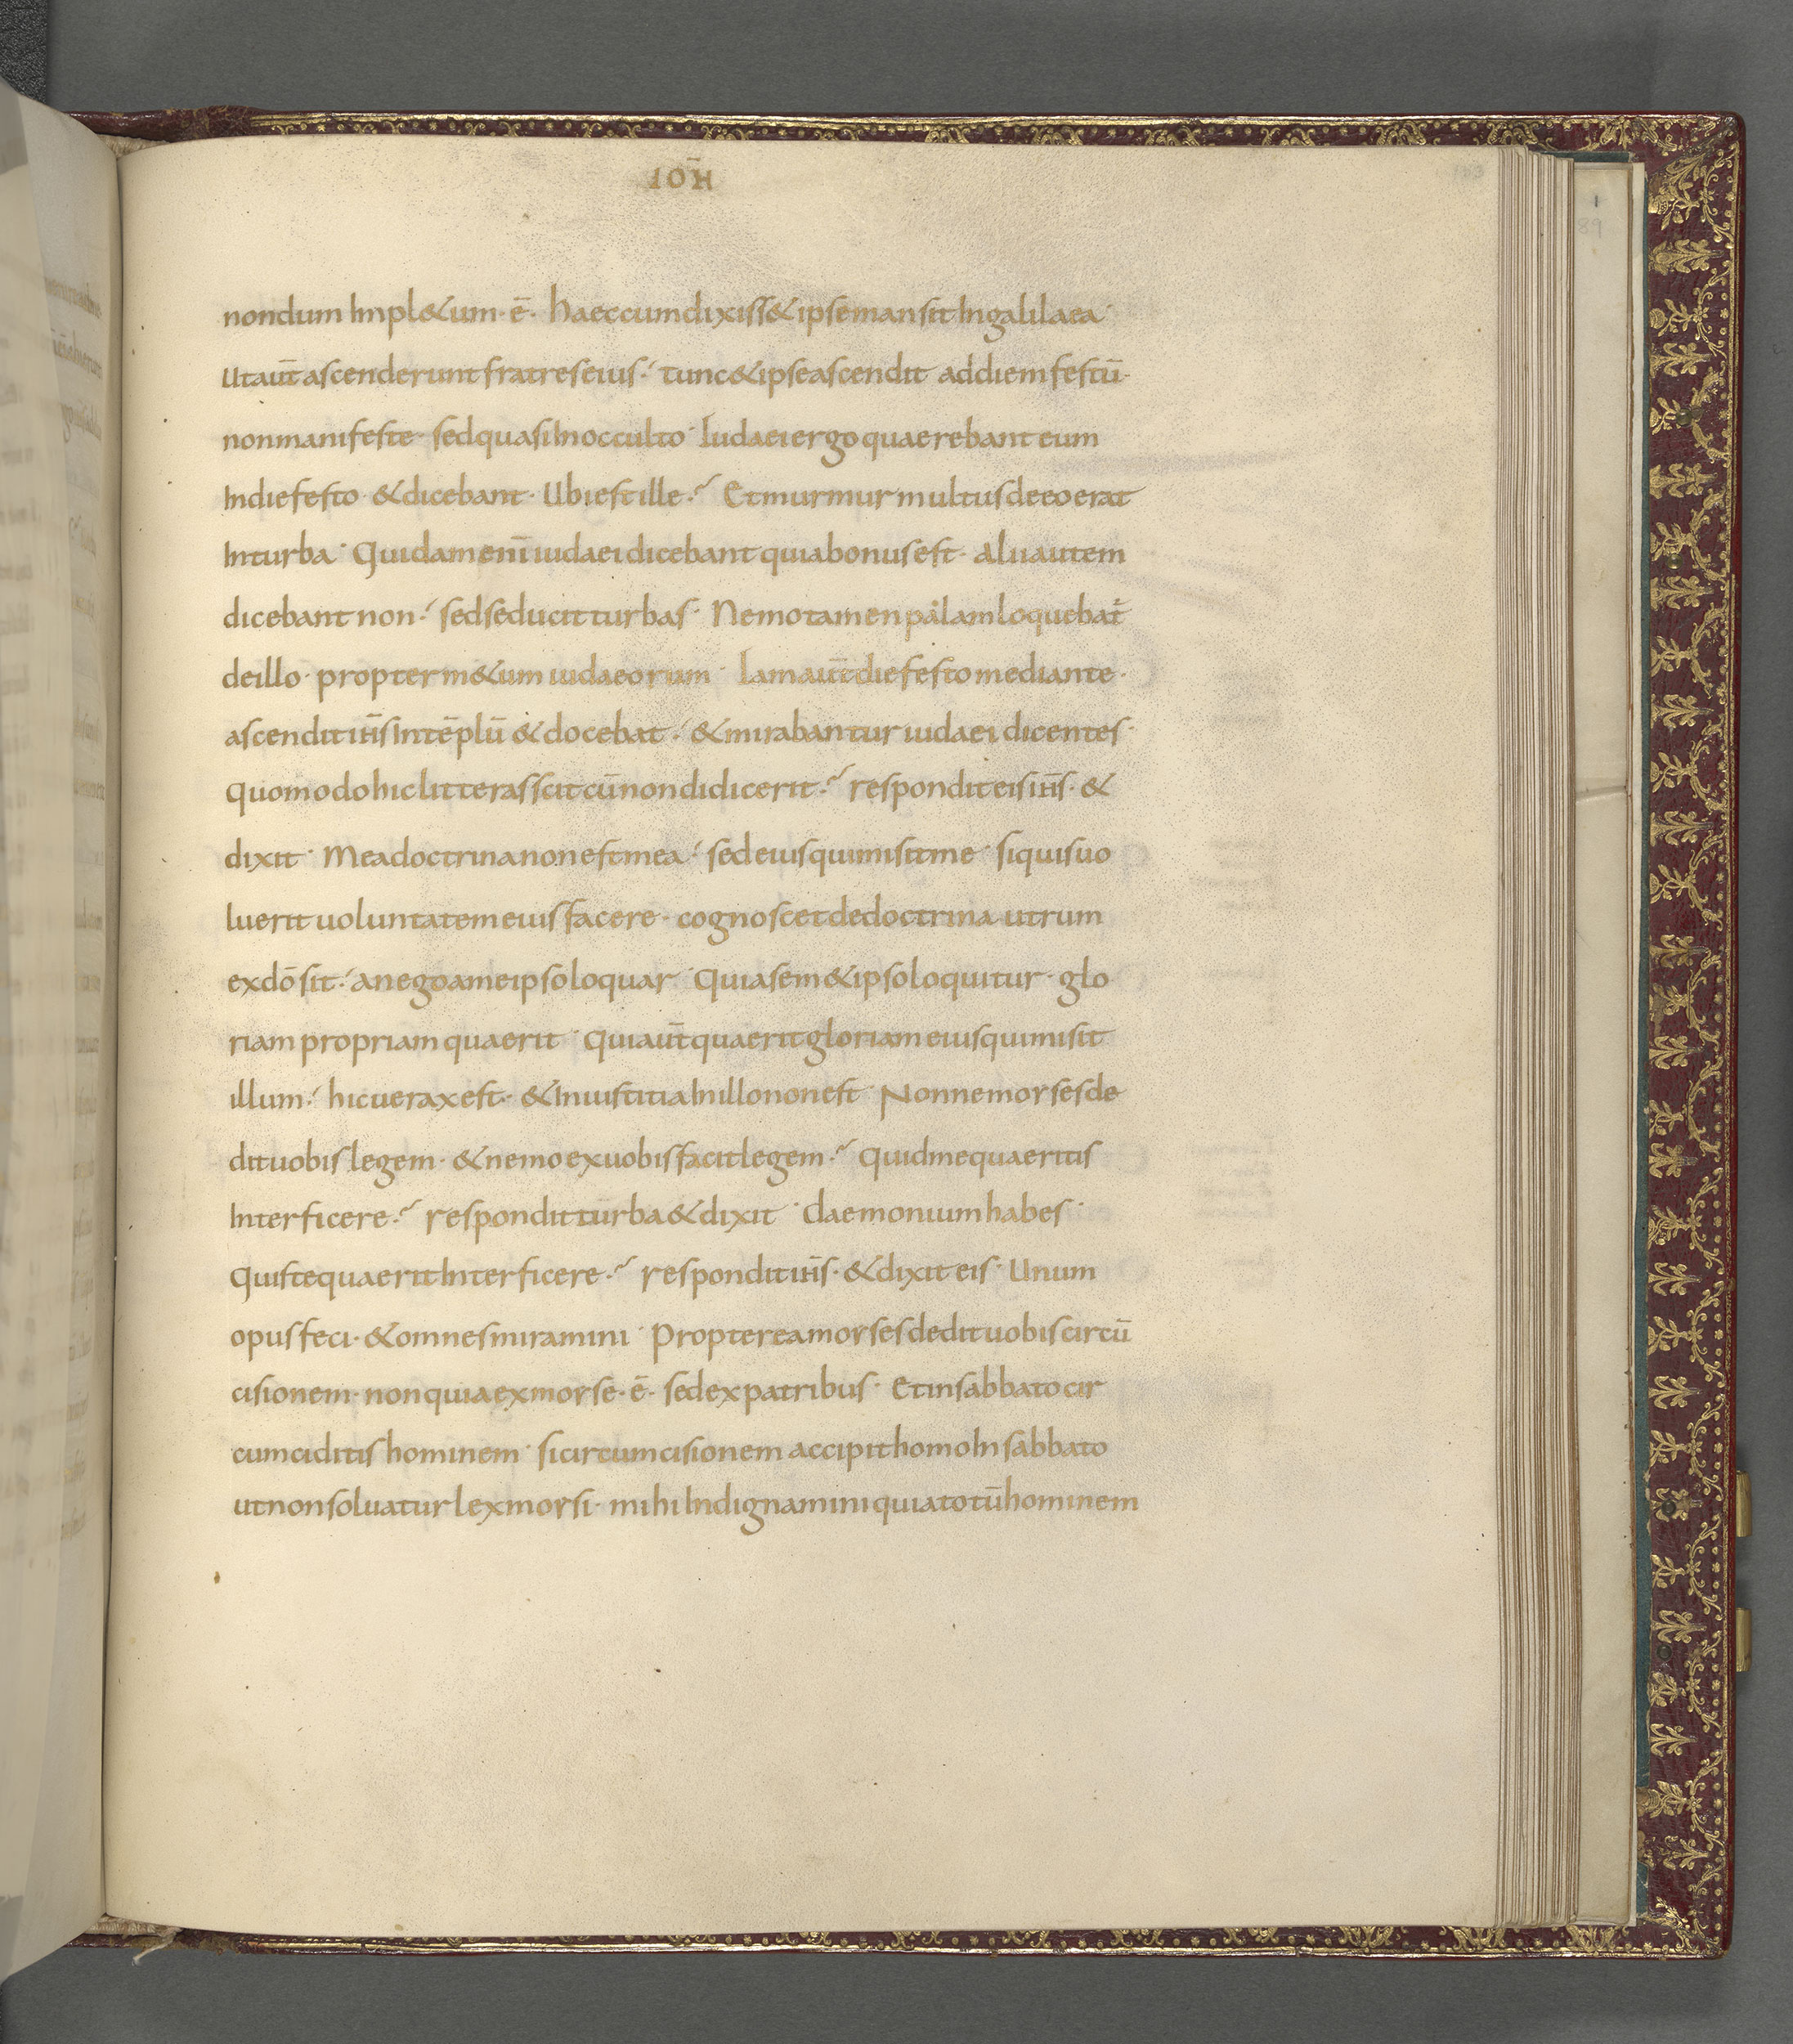 IOH̄
nondum Impl&um· ē· haec cum dixiss& ipse mansit In galilaea·
Ut aut̄ ascenderunt fratres eius·/ tunc & ipse ascendit ad diem festū·
non manifeste· sed quasi In occulto· Iudaei ergo quaerebant eum
In die festo· & dicebant· Ubi est ille·? Et murmur multus de eo erat
In turba· Quidam eni̅ iudaei dicebant quia bonus est· alii autem
dicebant non·/ sed seducit turbas· Nemo tamen palam loquebat̄
de illo· propter m&um iudaeorum· Iam aut̄ die festo mediante·
ascendit ih̄s In tēplū & docebat·/ & mirabantur iudaei dicentes·
Quomodo hic litteras scit cū non didicerit·? respondit eis ih̄s· &
dixit· Mea doctrina non est mea·/ sed eius qui misit me· si quis uo
luerit uoluntatem eius facere· cognoscet de doctrina utrum
ex dō sit·/ an ego a me ipso loquar· Qui a sem&ipso loquitur· glo
riam propriam quaerit· Qui aut̄ quaerit gloriam eius qui misit
illum·/ hic uerax est· & Iniustitia In illo non est· Nonne morses de
dit uobis legem· & nemo ex uobis facit legem·? Quid me quaeritis
Interficere·? respondit turba & dixit· daemonium habes·
Quis te quaerit Interficere·? respondit ih̄s· & dixit eis· Unum
opus feci· & omnes miramini· Propterea morses dedit uobis circū
cisionem· non quia ex morse· ē· sed ex patribus· Et in sabbato cir
cumciditis hominem· si circumcisionem accipit homo In sabbato
ut non soluatur lex morsi· mihi Indignamini quia totū hominem